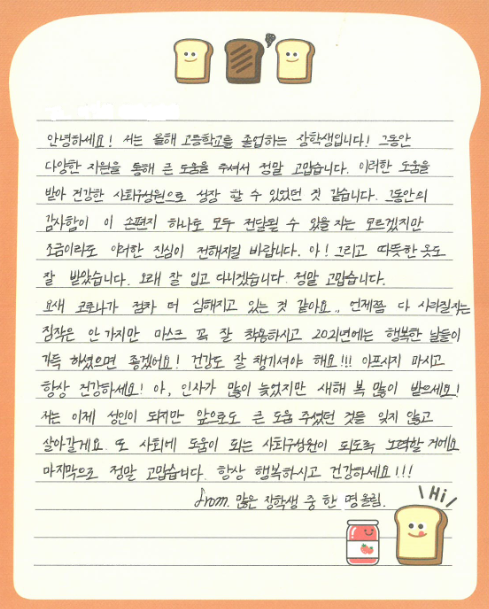 안녕하세요! 저는 올해 고등학교를 졸업하는 장학생입니다! 그동안
다양한 지원을 통해 큰 도움을 주셔서 정말 고맙습니다. 이러한 도움을
받아 건강한 사회구성원으로 성장 할 수 있었던 것 같습니다. 그동안의
감사함이 이 손편지 하나로 모두 전달될 수 있을 지는 모르겠지만
조금이라도 이러한 진심이 전해지길 바랍니다. 아! 그리고 따뜻한 옷도
잘 받았습니다. 오래 잘 입고 다니겠습니다. 정말 고맙습니다.
요새 코로나가 점차 더 심해지고 있는 것 같아요.. 언제쯤 다 사라질지는
짐작은 안 가지만 마스크 꼭 잘 착용하시고 2021년에는 행복한 날들이
가득 하셨으면 좋겠어요! 건강도 잘 챙기셔야 해요!!! 아프시지 마시고
항상 건강하세요! 아, 인사가 많이 늦었지만 새해 복 많이 받으세요!
저는 이제 성인이 되지만 앞으로도 큰 도움 주셨던 것들 잊지 않고
살아갈게요. 또 사회에 도움이 되는 사회구성원이 되도록 노력할 거예요
마지막으로 정말 고맙습니다. 항상 행복하시고 건강하세요!!!
from. 많은 장학생 중 한 명 올림.
Hi